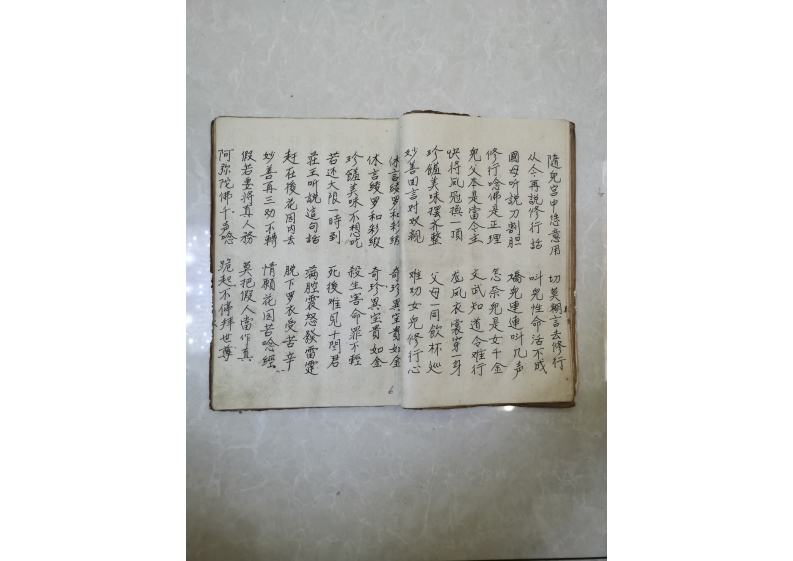 隨兒宮中恁意用 切莫糊言去修行
从今再説修行話 叫兒性命活不成
國母听説刀割胆 嬌兒連連叫几声
修行唸佛是正理 怎奈兒是女千金
兒父本是當今主 文武知道令难行
快将凤冠換一頂 龙凤衣裳穿一身
珍饈美味摆齐整 父母一同飲杯巡
妙善回言对双親 难劝女兒修行心
休言綾罗和彩缎 奇珍異宝貴如金
休言綾罗和彩缎 奇珍異宝貴如金
珍饈美味不想吃 殺生害命罪不輕
若还大限一時到 死後难見十閆君
莊王听説這句話 滿腔震怒發雷霆
赶在後花园内去 脱下罗衣受苦辛
妙善再三劝不轉 情願花园苦唸經
假若要将真人務 莫把假人當作真
阿弥陀佛千声唸 跪起不停拜世尊
6